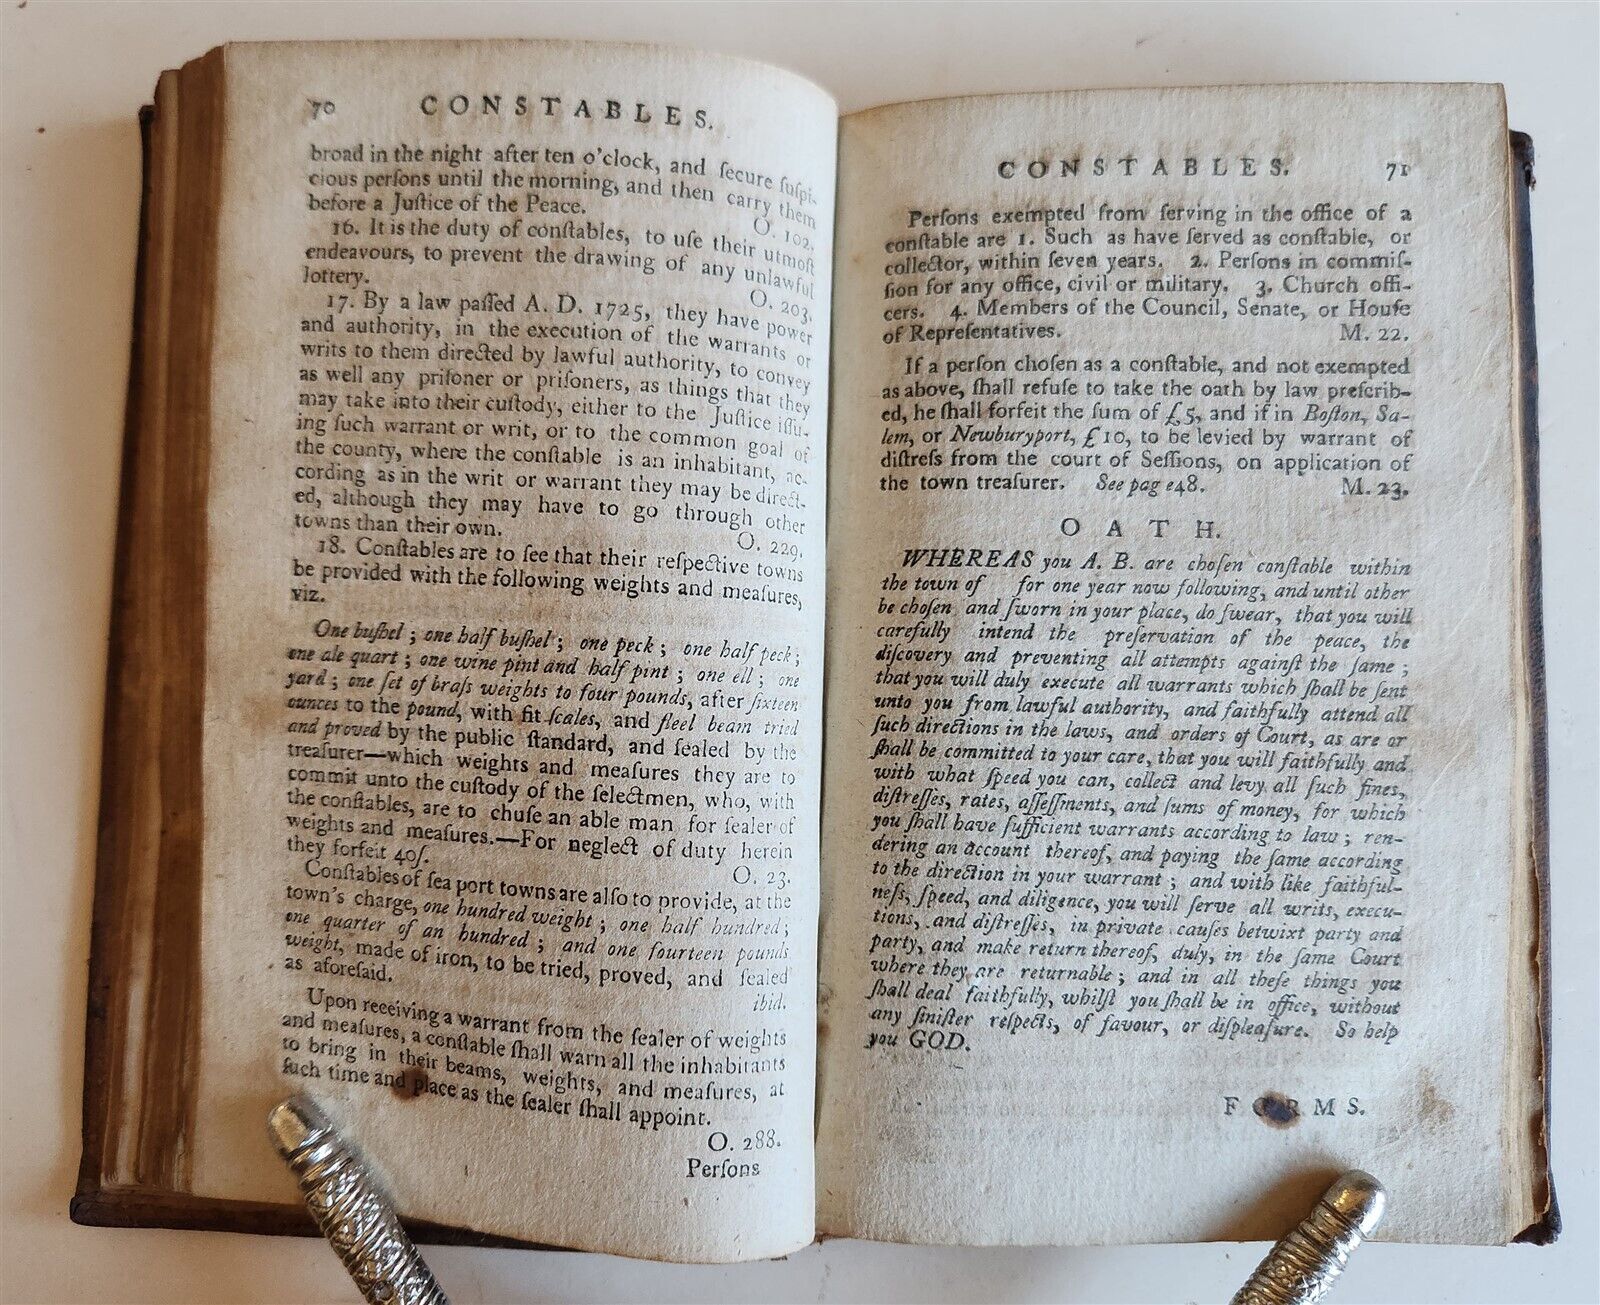 70 CONSTABLES.
broad in the night after ten o'clock, and ſecure ſuſpi-
cious perſons until the morning, and then carry them
before a Juſtice of the Peace. O. 102.
16. It is the duty of conſtables, to uſe their utmoſt
endeavours, to prevent the drawing of any unlawful
lottery. O. 203.
17. By a law paſſed A. D. 1725, they have power
and authority, in the execution of the warrants or
writs to them directed by lawful authority, to convey
as well any priſoner or priſoners, as things that they
may take into their cuſtody, either to the Juſtice iſſu-
ing ſuch warrant or writ, or to the common goal of
the county, where the conſtable is an inhabitant, ac-
cording as in the writ or warrant they may be direct-
ed, although they may have to go through other
towns than their own. O. 229.
18. Conſtables are to ſee that their reſpective towns
be provided with the following weights and meaſures,
viz.
One buſhel ; one half buſhel ; one peck ; one half peck ;
one ale quart ; one wine pint and half pint ; one ell ; one
yard ; one ſet of braſs weights to four pounds, after ſixteen
ounces to the pound, with fit ſcales, and ſteel beam tried
and proved by the public ſtandard, and ſealed by the
treaſurer—which weights and meaſures they are to
commit unto the cuſtody of the ſelectmen, who, with
the conſtables, are to chuſe an able man for ſealer of
weights and meaſures.—For neglect of duty herein
they forfeit 40ſ. O. 23.
Conſtables of ſea port towns are alſo to provide, at the
town's charge, one hundred weight ; one half hundred ;
one quarter of an hundred ; and one fourteen pounds
weight, made of iron, to be tried, proved, and ſealed
as aforeſaid. ibid.
Upon receiving a warrant from the ſealer of weights
and meaſures, a conſtable ſhall warn all the inhabitants
to bring in their beams, weights, and meaſures, at
ſuch time and place as the ſealer ſhall appoint.
O. 288.
Perſons
CONSTABLES. 71
Perſons exempted from ſerving in the office of a
conſtable are 1. Such as have ſerved as conſtable, or
collector, within ſeven years. 2. Perſons in commiſ-
ſion for any office, civil or military. 3. Church offi-
cers. 4. Members of the Council, Senate, or Houſe
of Repreſentatives. M. 22.
If a perſon choſen as a conſtable, and not exempted
as above, ſhall refuſe to take the oath by law preſcrib-
ed, he ſhall forfeit the ſum of £5, and if in Boſton, Sa-
lem, or Newburyport, £10, to be levied by warrant of
diſtreſs from the court of Seſſions, on application of
the town treaſurer. See pag e48. M. 23.
OATH.
WHEREAS you A. B. are choſen conſtable within
the town of for one year now following, and until other
be choſen and ſworn in your place, do ſwear, that you will
carefully intend the preſervation of the peace, the
diſcovery and preventing all attempts againſt the ſame ;
that you will duly execute all warrants which ſhall be ſent
unto you from lawful authority, and faithfully attend all
ſuch directions in the laws, and orders of Court, as are or
ſhall be committed to your care, that you will faithfully and
with what ſpeed you can, collect and levy all ſuch fines,
diſtreſſes, rates, aſſeſſments, and ſums of money, for which
you ſhall have ſufficient warrants according to law ; ren-
dering an account thereof, and paying the ſame according
to the direction in your warrant ; and with like faithful-
neſs, ſpeed, and diligence, you will ſerve all writs, execu-
tions, and diſtreſſes, in private cauſes betwixt party and
party, and make return thereof, duly, in the ſame Court
where they are returnable ; and in all theſe things you
ſhall deal faithfully, whilſt you ſhall be in office, without
any ſiniſter reſpects, of favour, or diſpleaſure. So help
you GOD.
FORMS.